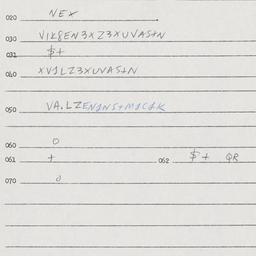 020 NEX
030 VIK8EN3XZ3XUVASIN
031 $+
040 XV1LZ3XUVASIN
050 VA.LZENANS+MACAK
060 O
061 + 062 $+ QR
070 O